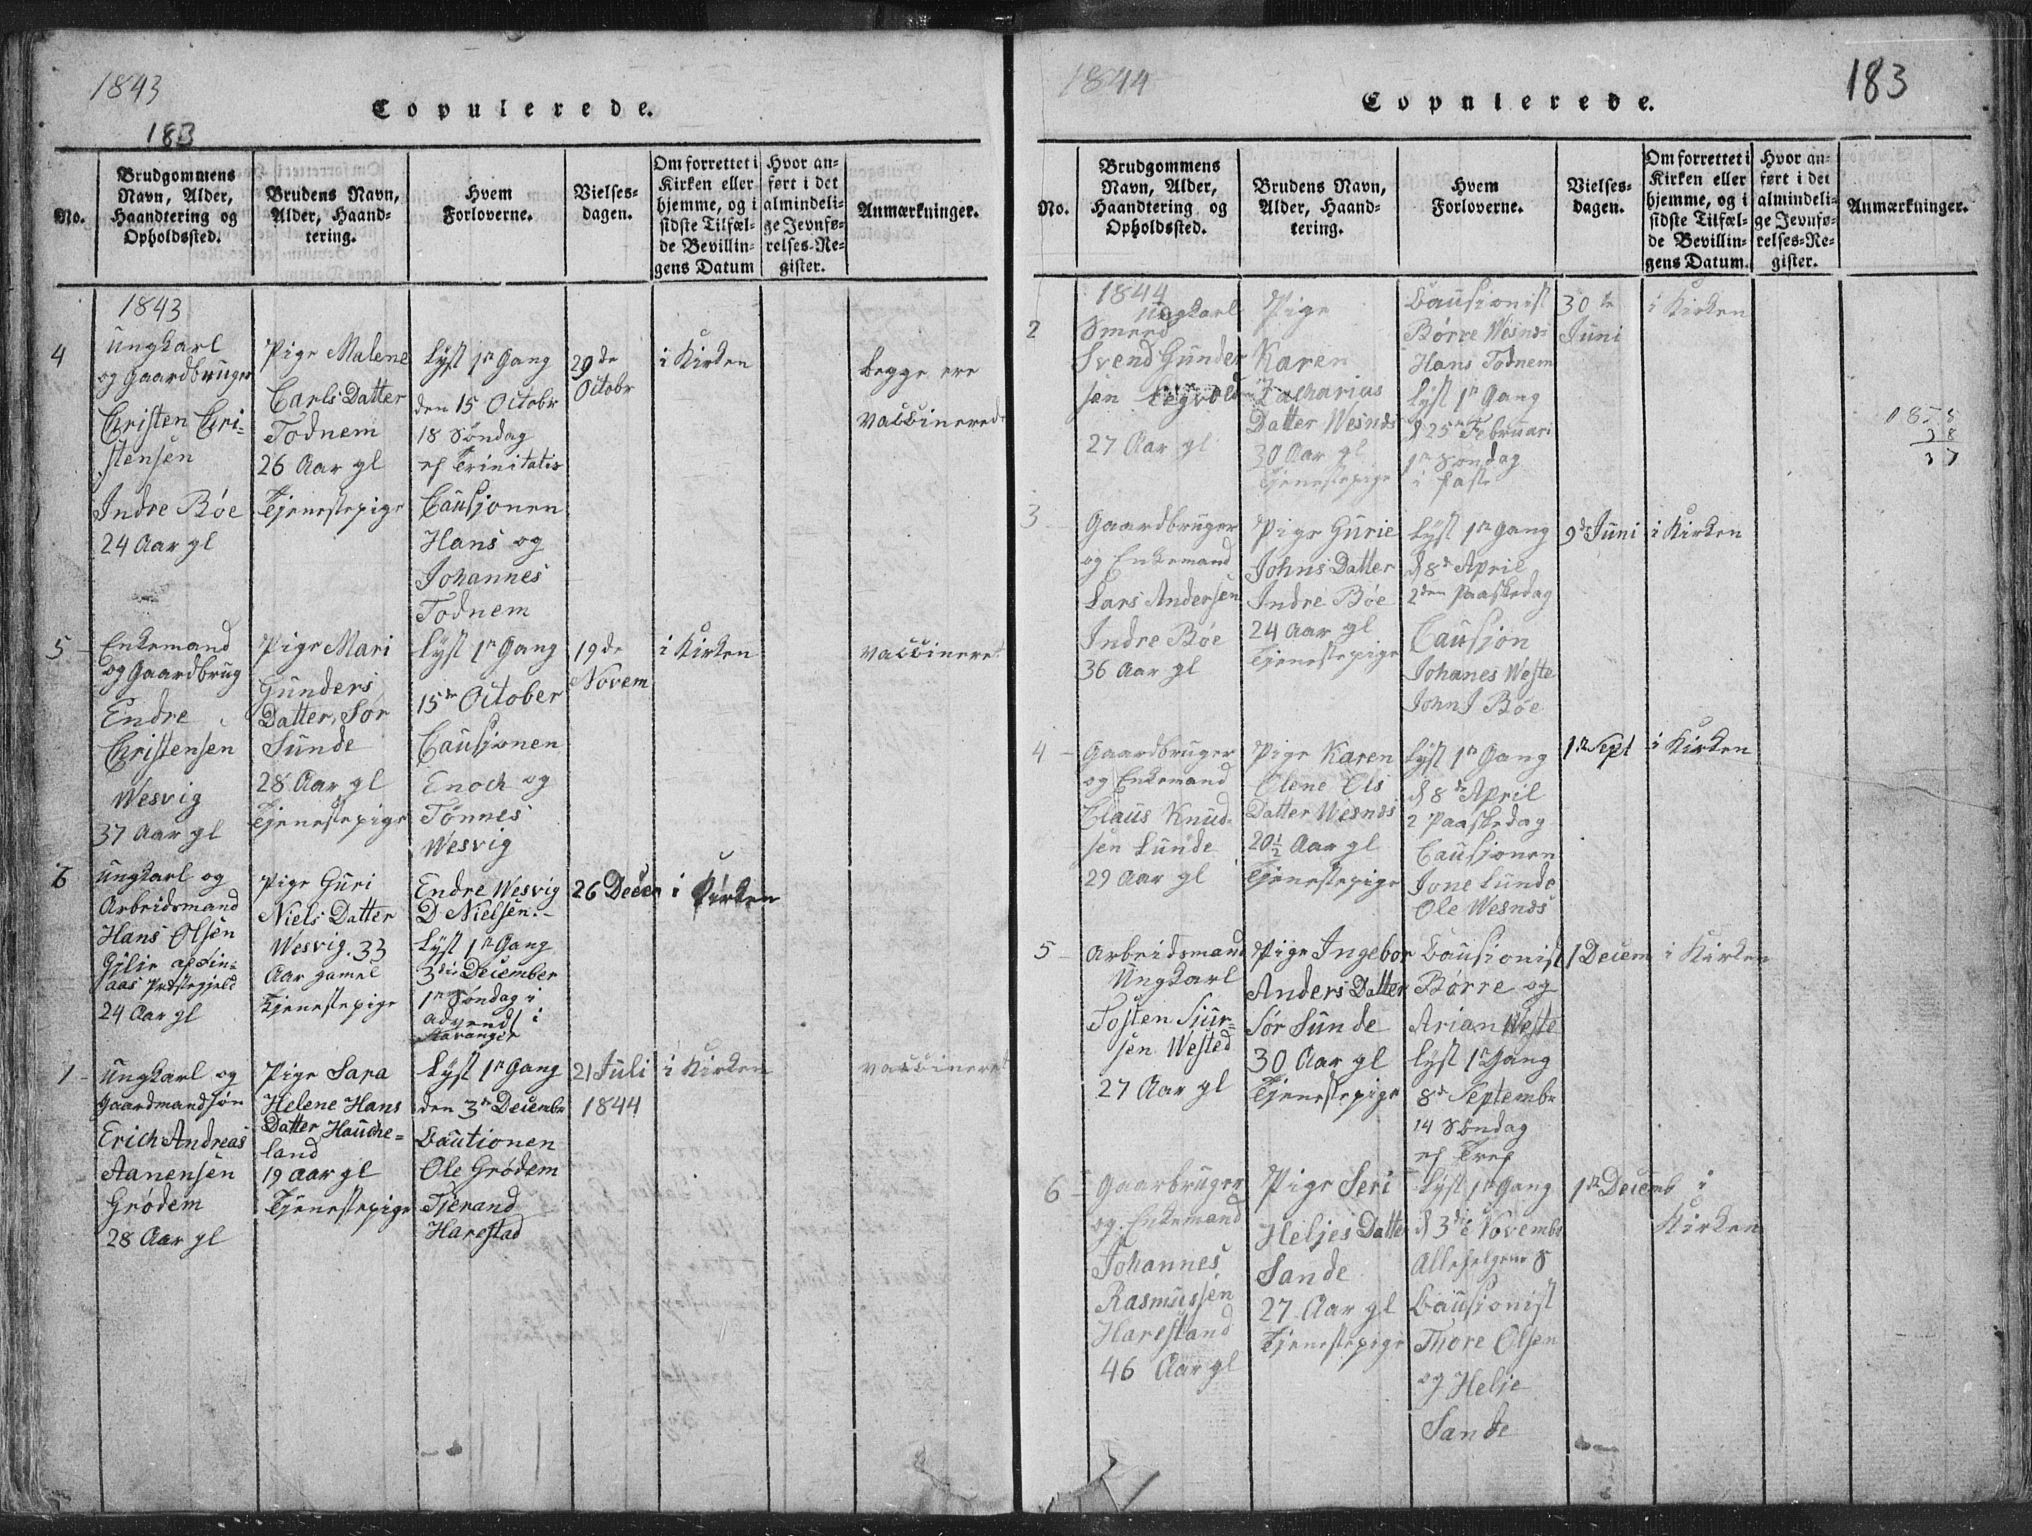 1843
183
Copulerede.
No.
Brudgommens
Navn, Alder,
Haandtering og
Opholdssted.
Brudens Navn,
Alder, Haand-
tering.
Hvem
Forloverne.
Vielses-
dagen.
Om forrettet i
Kirken eller
hjemme, og i
sidste Tilfæl-
de Bevillin-
gens Datum
Hvor an-
ført i det
almindeli-
ge Jevnfø-
relses-Re-
gister.
Anmærkninger.
1843
4
Ungkarl
og Gaardbruger
Christen Chri-
stensen
Indre Bøe
24 Aar gl
Pige Malene
Carls Datter
Todnem
26 Aar gl
Tjenestepige
Lyst 1n Gang
den 15 Octobr
18 Søndag
ef Trinitatis
Causjonen
Hans og
Johannes
Todnem
29de
Octobr
i Kirken
begge ere
vaccinerede
5
Enkemand
og Gaardbrug
Endre
Christensen
Wesvig
37 Aar gl
Pige Mari
Gunders
Datter, Sør
Sunde
28 Aar gl
Tjenestepige
Lyst 1n Gang
15de October
Causjonen
Enoch og
Tønnes
Wesvig
19de
Novem
i Kirken
vaccineret
6
Ungkarl og
Arbeidsmand
Hans Olsen
Gilje
aas Præstegjeld
24 Aar gl
Pige Guri
Niels Datter
Wesvig. 33
Aar gamel
Tjenestepige
Endre Wesvig
D Nielsen.-
Lyst 1n Gang
3die December
1n Søndag i
advend i
Stavanger
26 Decer
i Kirken
7
Ungkarl og
Gaardmandsøn
Erich Andreas
Aanensen
Grødem
28 Aar gl
Pige Sara
Helene Hans
Datter Hauche-
land
19 aar gl
Tjenestepige
Lyst 1n Gang
den 3n Decembr
Cautionen
Ole Grødem
Tjerand
Harestad
21 Juli
1844
i Kirken
vaccineret
1844
183
Copulerede.
No.
Brudgommens
Navn, Alder,
Haandtering og
Opholdssted.
Brudens Navn,
Alder, Haand-
tering.
Hvem
Forloverne.
Vielses-
dagen.
Om forrettet i
Kirken eller
hjemme, og i
sidste Tilfæl-
de Bevillin-
gens Datum.
Hvor an-
ført i det
almindeli-
ge Jevnfø-
relses-Re-
gister.
Anmærkninger.
1844
2
Ungkarl
Smeed
Svend Gunder
sen
27 Aar gl
Pige
Karen
Zacharias
Datter Wesnæs
30 Aar gl
Tjenestepige
Causionist
Børre Wesnæs
Hans Todnem
Lyst 1n Gang
d 25n Februari
1n Søndag
i faste
30te
Juni
i Kirken
3
Gaardbruger
og Enkemand
Lars Andersen
Indre Bøe
36 Aar gl
Pige Gurie
Johns Datter
Indre Bøe
24 Aar gl
Tjenestepige
Lyst 1n Gang
d 8de April
2den Paaskedag
Causjon
Johanes Weste
John J Bøe
9de Juni
i Kirken
4
Gaardbruger
og Enkemand
Claus Knud-
sen Sunde
29 Aar gl
Pige Karen
Olene Ols
Datter Wesnæs
20½ Aar gl
Tjenestepige
Lyst 1n Gang
d 8de April
2 Paaskedag
Causjonen
Jone Sunde
Ole Wesnæs
1te Sept
i Kirken
5
Arbeidsmand
Ungkarl
Tosten Siur-
sen Wested
27 Aar gl
Pige Ingebor
Anders Datter
Sør Sunde
30 Aar gl
Tjenestepige
Causionist
Børre og
Arian Weste
Lyst 1n Gang
8de Septembr
14 Søndag
ef Tref
1 Decem
i Kirken
6
Gaarbruger
og Enkemand
Johannes
Rasmussen
Harestand
46 Aar gl
Pige Seri
Heljes Datter
Sande
27 Aar gl
Tjenestepige
Lyst 1n Gang
d 3die Novembr
Allehelgens S
Causionist
Thore Olsen
og Helje
Sande
1te Decemb
i
Kirken